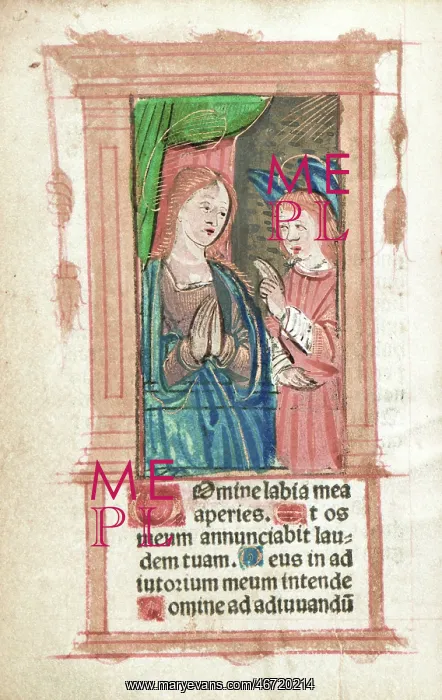 ME
PL
ME
PL
Domine labia mea
aperies. Et os
meum annunciabit lau⸗
dem tuam. Deus in ad
iutorium meum intende
Domine ad adiuuandū
www.maryevans.com/46720214